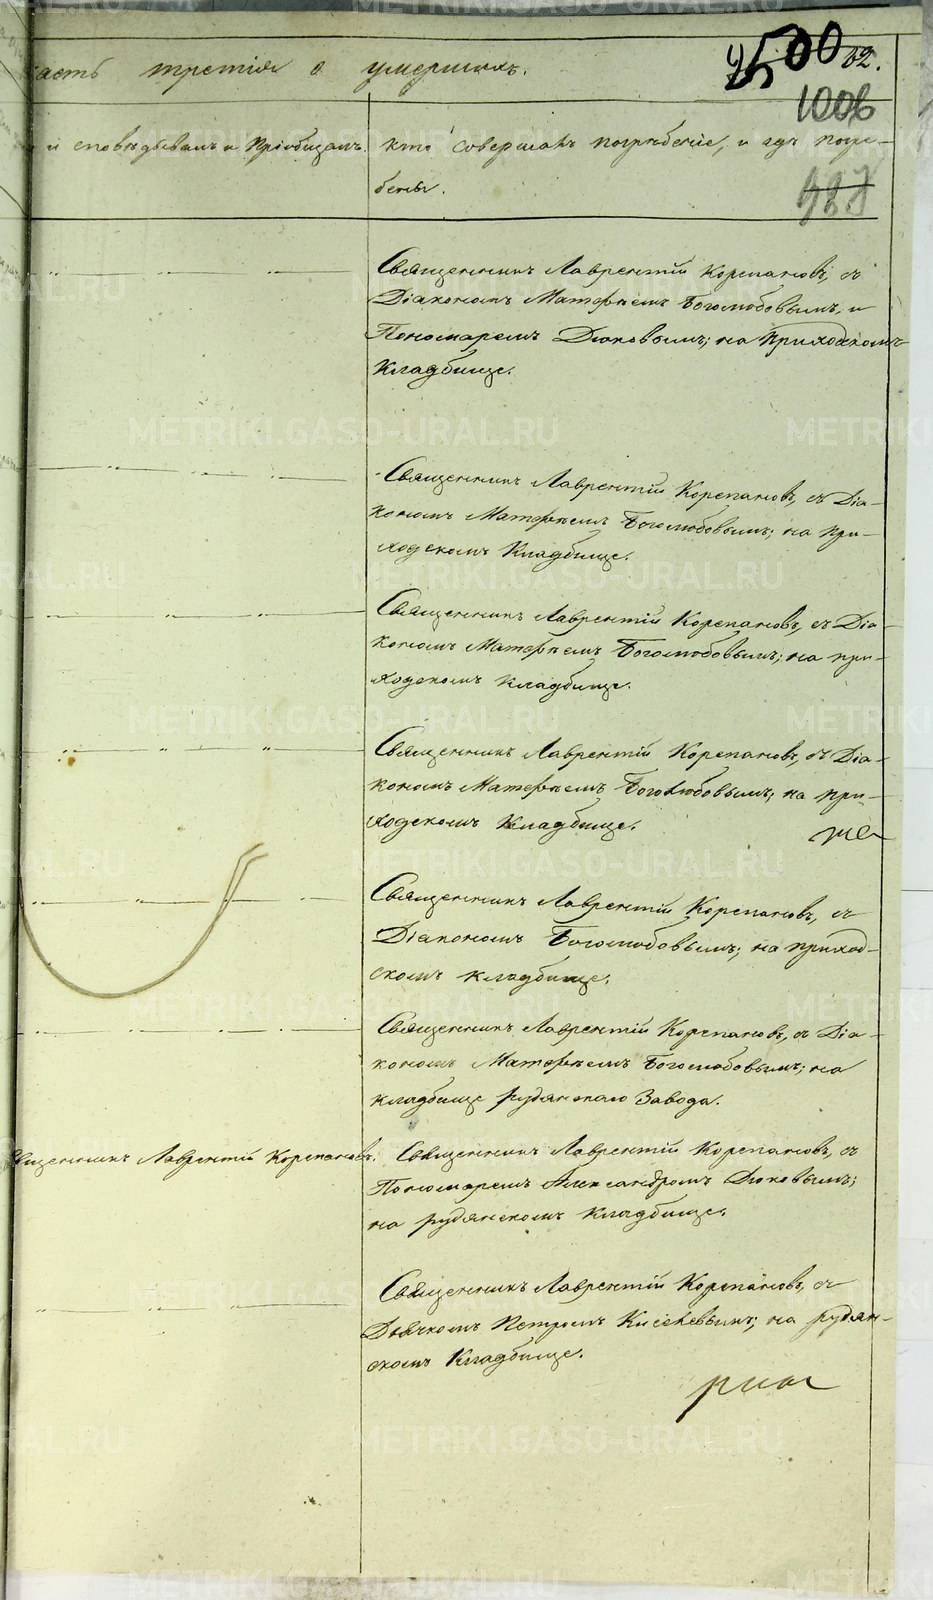 часть третія о умершихъ.
500
62.
1006
и исповѣдывалъ и пріобщалъ.
кто совершалъ погребеніе, и гдѣ погре-
бены.
Священникъ Лаврентій Корепановъ, съ
Діакономъ Матѳѣемъ Боголюбовымъ, и
Пономаремъ Дюковымъ; на приходскомъ
Кладбище.
Священникъ Лаврентій Корепановъ, съ Діа-
кономъ Матѳѣемъ Боголюбовымъ; на при-
ходскомъ Кладбище.
Священникъ Лаврентій Корепановъ, съ Діа-
кономъ Матѳѣемъ Боголюбовымъ; на при-
ходскомъ кладбище.
Священникъ Лаврентій Корепановъ, съ Діа-
кономъ Матѳѣемъ Боголюбовымъ; на при-
ходскомъ Кладбище.
Священникъ Лаврентій Корепановъ, съ
Діакономъ Боголюбовымъ; на приход-
скомъ кладбище.
Священникъ Лаврентій Корепановъ, съ Діа-
кономъ Матѳѣемъ Боголюбовымъ; на
кладбище рудянскаго Завода.
Священникъ Лаврентій Корепановъ.
Священникъ Лаврентій Корепановъ, съ
Пономаремъ Александромъ Дюковымъ;
на рудянскомъ Кладбище.
Священникъ Лаврентій Корепановъ, съ
Дьячкомъ Петромъ Киселевымъ; на рудян-
скомъ Кладбище.
METRIKI.GASO-URAL.RU